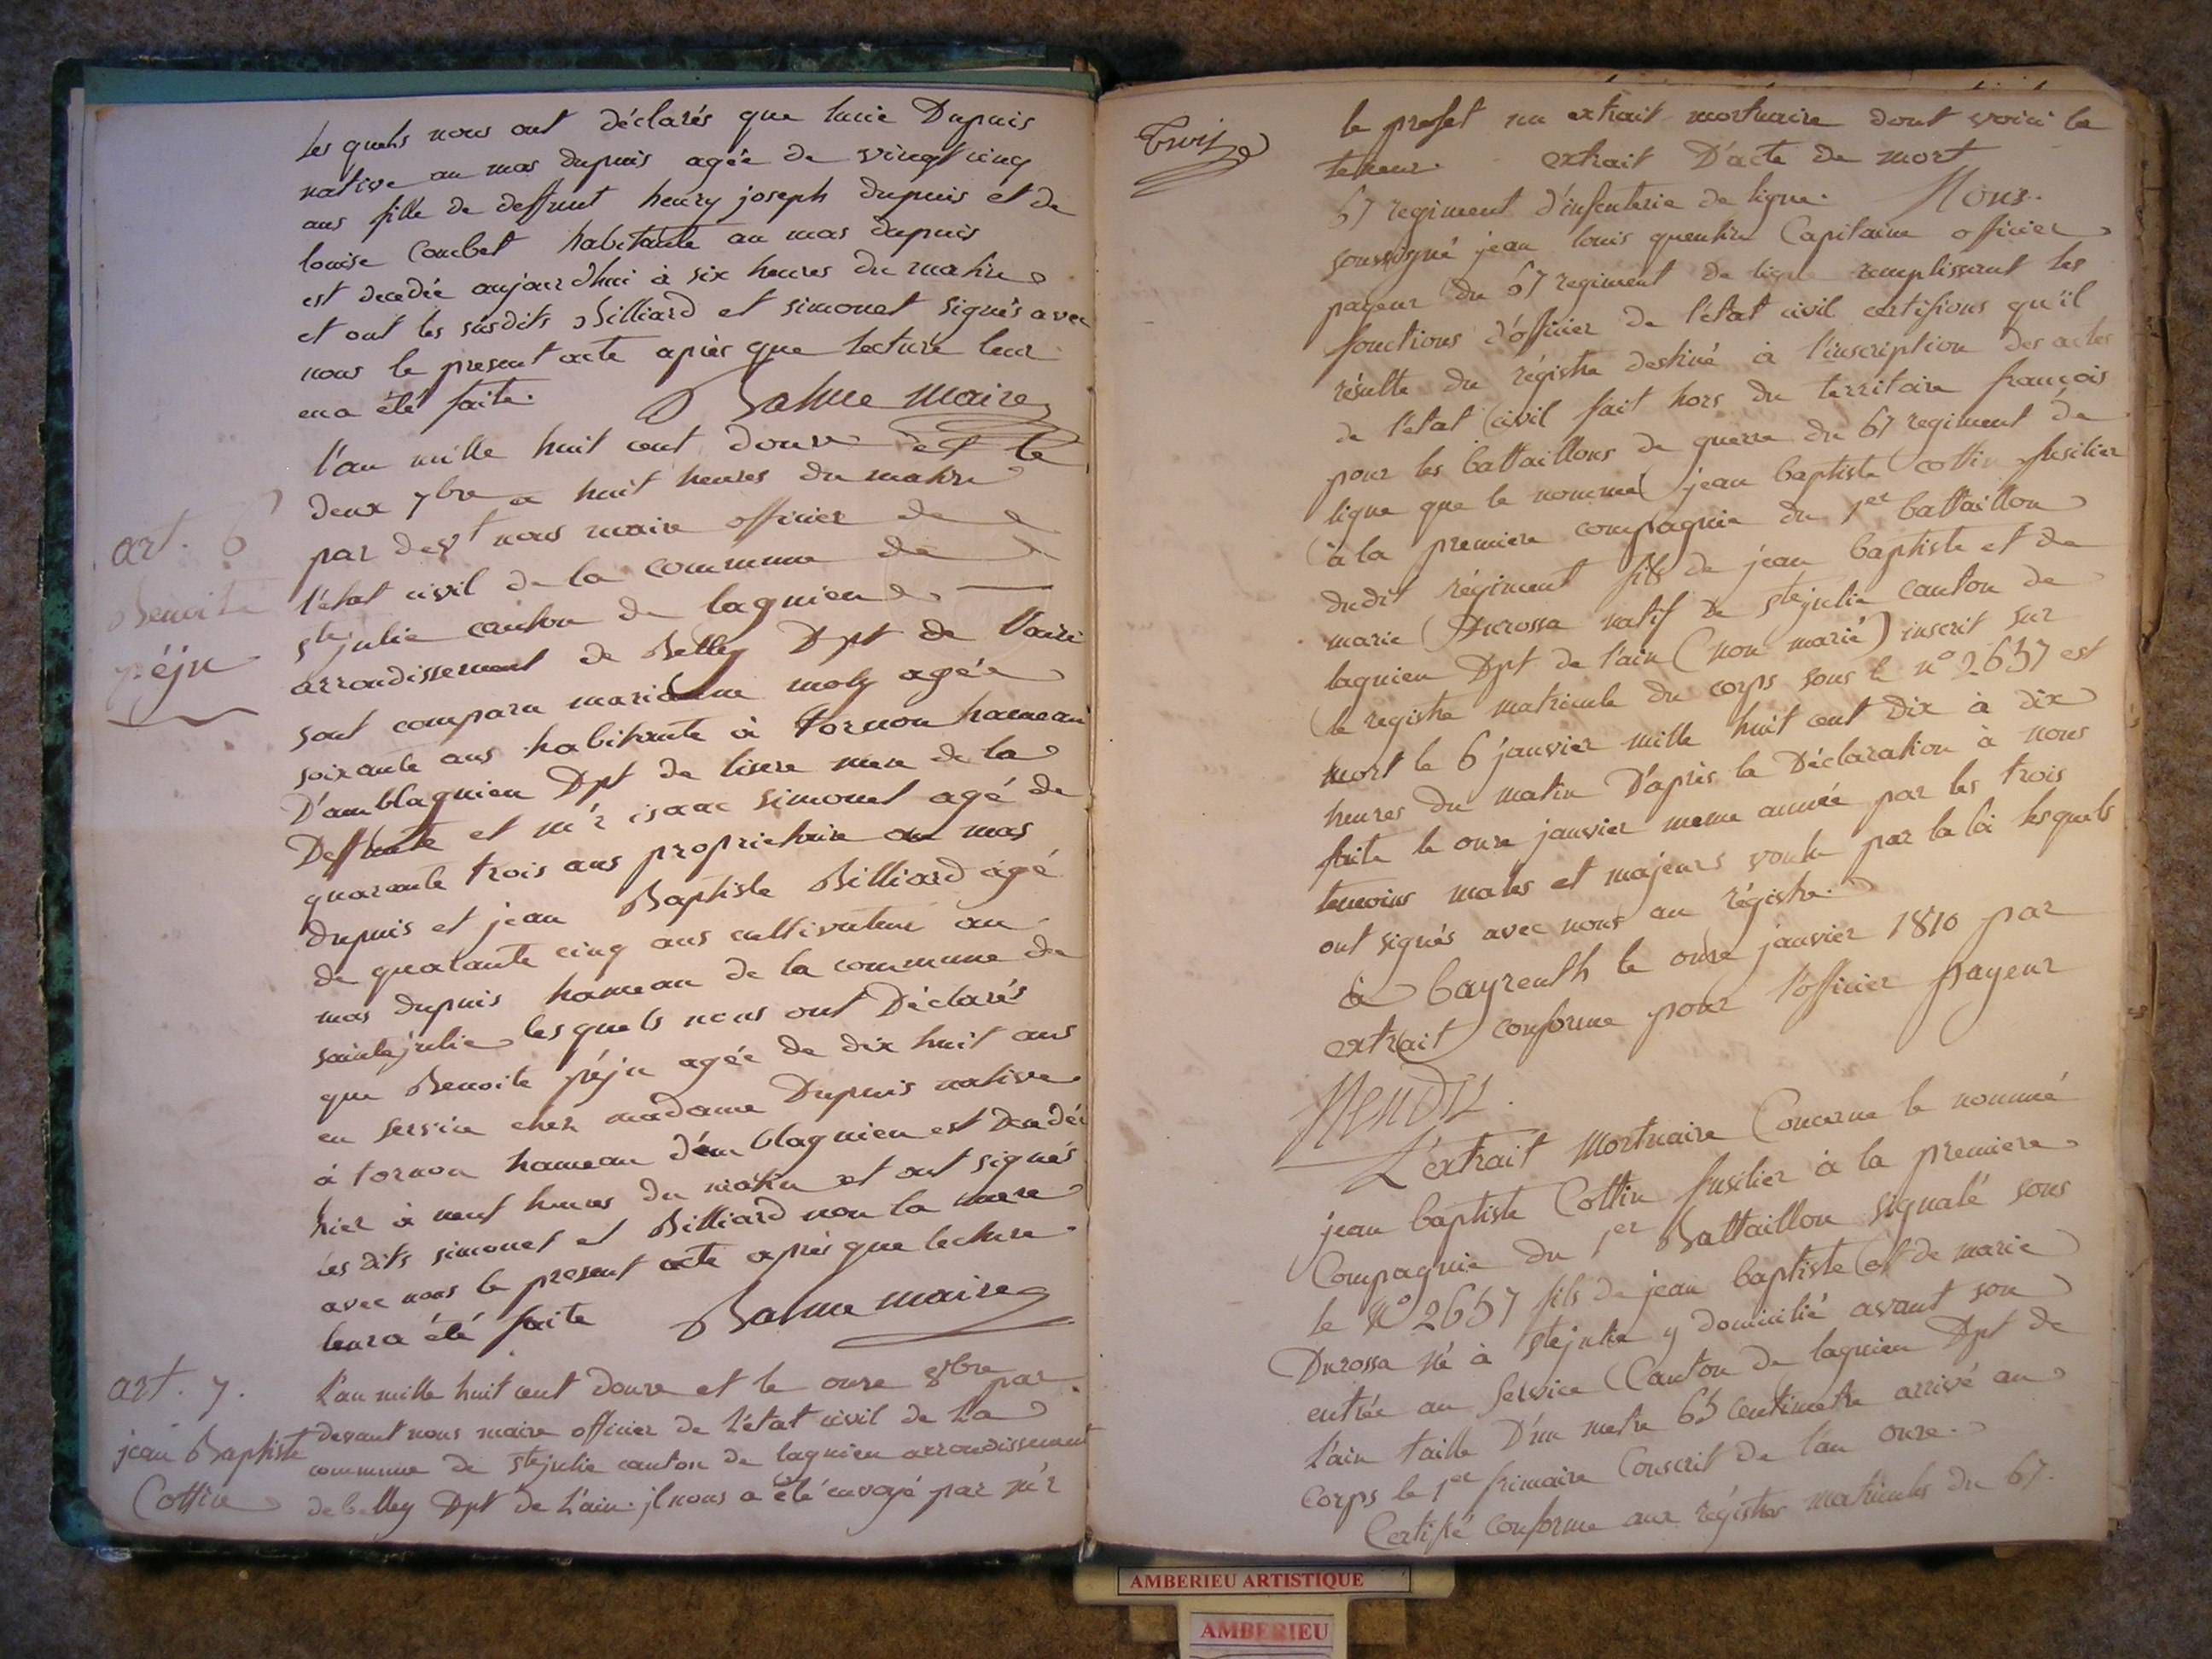 les quels nous ont déclarés que lucie Dupuis
native au mas dupuis agée de vingt cinq
ans fille de deffunt henry joseph dupuis et de
louise Combet habitante au mas dupuis
est decedée aujourdhui à six heures du matin
et ont les susdits Billiard et simonet signés avec
nous le present acte après que lecture leur
en a été faite. Balme maire
l'an mille huit cent douze et le
deux 7bre a huit heures du matin
art. 6
Benoite
péju
par devt nous maire officier de
l'état civil de la commune de
ste julie canton de lagnieu
arrondissement de Belley Dpt de l'ain
sont comparu marianne moly agée
soixante ans habitante à tornon hameau
D'amblagnieu Dpt de lisere mere de la
Deffunte et m'r isaac simonet agé de
quarante trois ans proprietaire au mas
dupuis et jean Baptiste Billiard agé
de quarante cinq ans cultivateur au
mas dupuis hameau de la commune de
sainte julie les quels nous ont Déclarés
que Benoite péju agée de dix huit ans
en service chez madame Dupuis native
à tornon hameau d'amblagnieu est Decedée
hier à neuf heures du matin et ont signés
les dits simonet et Billiard non la mere
avec nous le present acte après que lecture
leur a été faite Balme maire
art. 7.
jean Baptiste
Cottin
L'an mille huit cent douze et le onze 8bre par
devant nous maire officier de l'état civil de la
commune de ste julie canton de lagnieu arrondissement
de belley Dpt de L'ain. il nous a été envoyé par m'r
Trois
le prefet un extrait mortuaire dont voici la
teneur. extrait D'acte de mort
67 regiment d'infenterie de ligne. Nous
soussigné jean louis quentin Capitaine officier
payeur du 67 regiment de ligne remplissant les
fonctions d'officier de l'état civil certifions qu'il
résulte du régistre destiné à l'inscription des actes
de l'état civil fait hors du territoire françois
pour les battaillons de guerre du 67 regiment de
ligne que le nommé jean baptiste cottin fusilier
à la premiere compagnie du 1er battaillon
dudit régiment fils de jean baptiste et de
marie Durossa natif de ste julie canton de
lagnieu Dpt de l'ain (non marié) inscrit sur
le registre matricule du corps sous le n° 2657 est
mort le 6 janvier mille huit cent dix à dix
heures du matin D'après la Déclaration à nous
faite le onze janvier meme année par les trois
temoins males et majeurs voulu par la loi lesquels
ont signés avec nous au régistre.
à bayreuth le onze janvier 1810 par
extrait conforme pour l'officier payeur
L'extrait Mortuaire Concerne le nommé
jean baptiste Cottin fusilier à la premiere
Compagnie du 1er Battaillon signalé sous
le N° 2657 fils de jean baptiste et de marie
Durossa né à ste julie y domicilié avant son
entrée au service Canton de lagnieu Dpt de
l'ain taille D'un metre 65 Centimetre arrivé au
corps le 1er frimaire Conscrit de l'an onze.
Certifié conforme aux régistres matricules du 67.
AMBERIEU ARTISTIQUE
AMBERIEU